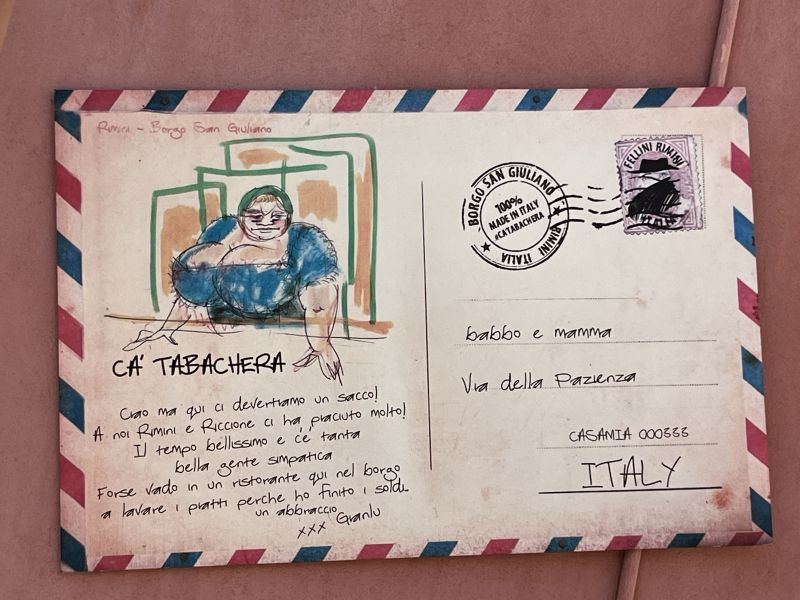 Rimini - Borgo San Giuliano
CA' TABACHERA
Ciao ma qui ci devertiamo un sacco!
A noi Rimini e Riccione ci ha praciuto molto!
Il tempo bellissimo e c'è tanta
bella gente simpatica
Forse vado in un ristorante qui nel borgo
a lavare i pratti perche ho finito i soldi
un abbraccio
xxx Granlu
BORGO SAN GIULIANO
100%
MADE IN ITALY
#CATABACHERA
RIMINI ITALIA
FELLINI RIMINI
ITALIA
babbo e mamma
Via della Pazienza
CASAMIA 000333
ITALY